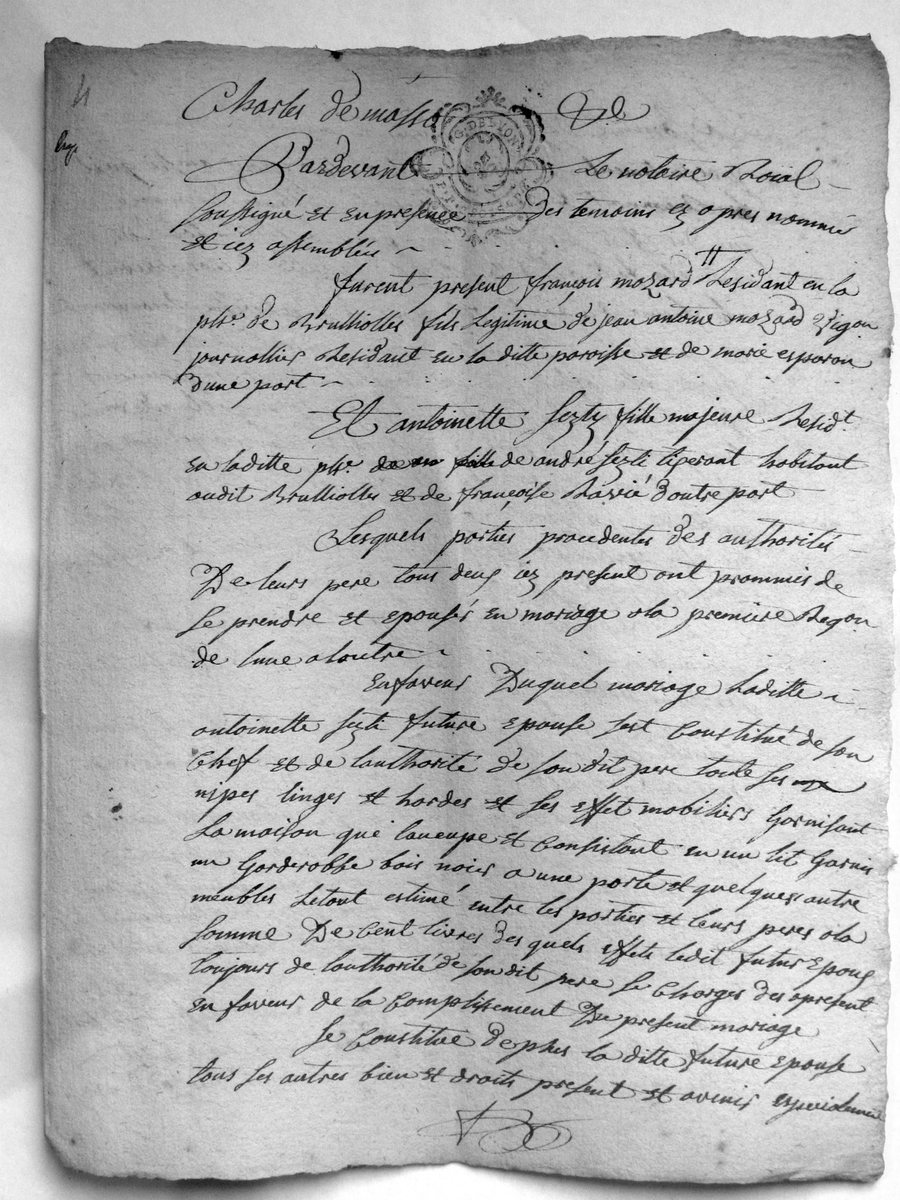 4
Charles de masso &c
G. DE LYON
Pardevant Le notaire Roial
soussigné et en presence des temoins cy apres nommés
et icy assemblés
furent present françois mozard Residant en la
psse de Brulliolles fils Legitime de jean antoine mozard
journallier Residant en la ditte paroisse et de marie esparon
dune part
Et antoinette sezty fille majeure Residt
en laditte psse de andré sezti tigerant habitant
audit Brulliolles et de françoise Ravié dautre part
Lesquels parties procedentes des authorités
De leurs pere tous deux icy present ont prommis de
se prendre et epousés en mariage a la premiere Requon
de lune a lautre
En faveur Duquel mariage Laditte
antoinette sezti future epouse sest Constitué de son
Chef et de lauthorité de son dit pere toute ses
nipes linges et hardes et ses effet mobiliers Garnisant
La maison que laucupe et Consistant en un lit Garnis
un Garderobbe bois noier a une porte et quelques autre
meubles Le tout estimé entre les parties et leurs peres a la
somme De Cent livres des quels effets ledit futur Epoux
toujours de lauthorité de son dit pere se Charges des apresent
en faveur de la Complissement Du present mariage
se Constitue de plus la ditte future epouse
tous ses autres bien et droits present et avenir